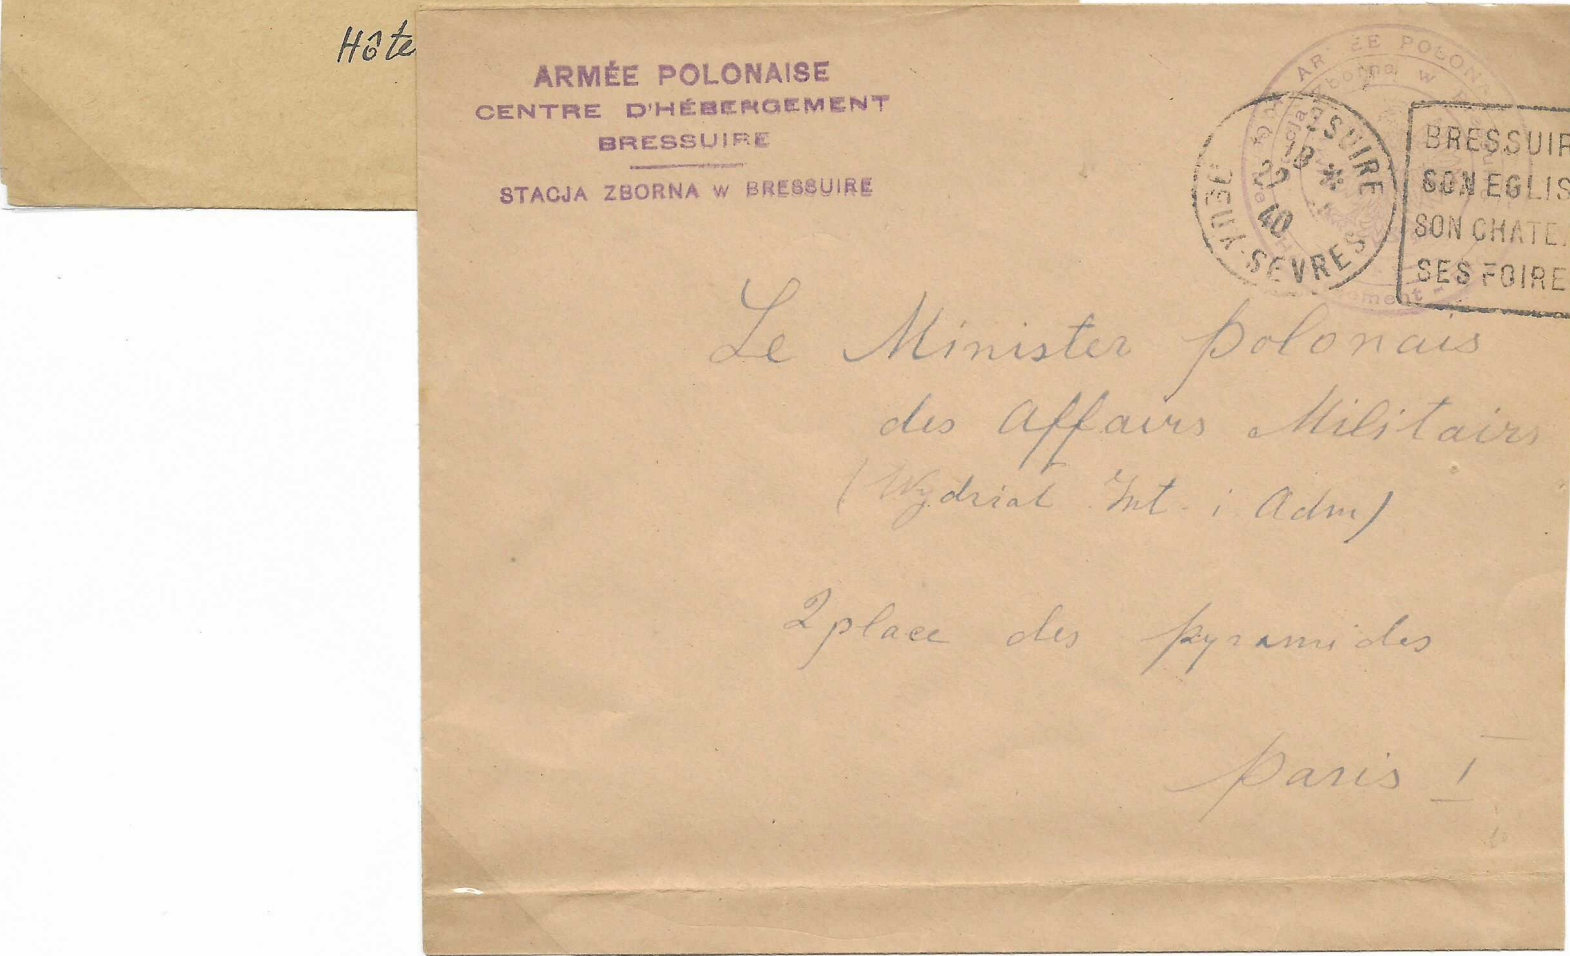 Hôte
ARMÉE POLONAISE
CENTRE D'HÉBERGEMENT
BRESSUIRE
STACJA ZBORNA w BRESSUIRE
ARMÉE POLON
Zborna w
ement -
SSUIRE
18 *
27
40
DEUX-SEVRES
BRESSUIR
SON EGLIS
SON CHATE
SES FOIRE
Le Minister polonais
des Affairs Militairs
(Wydział Int. i Adm)
2 place des pyramides
Paris I